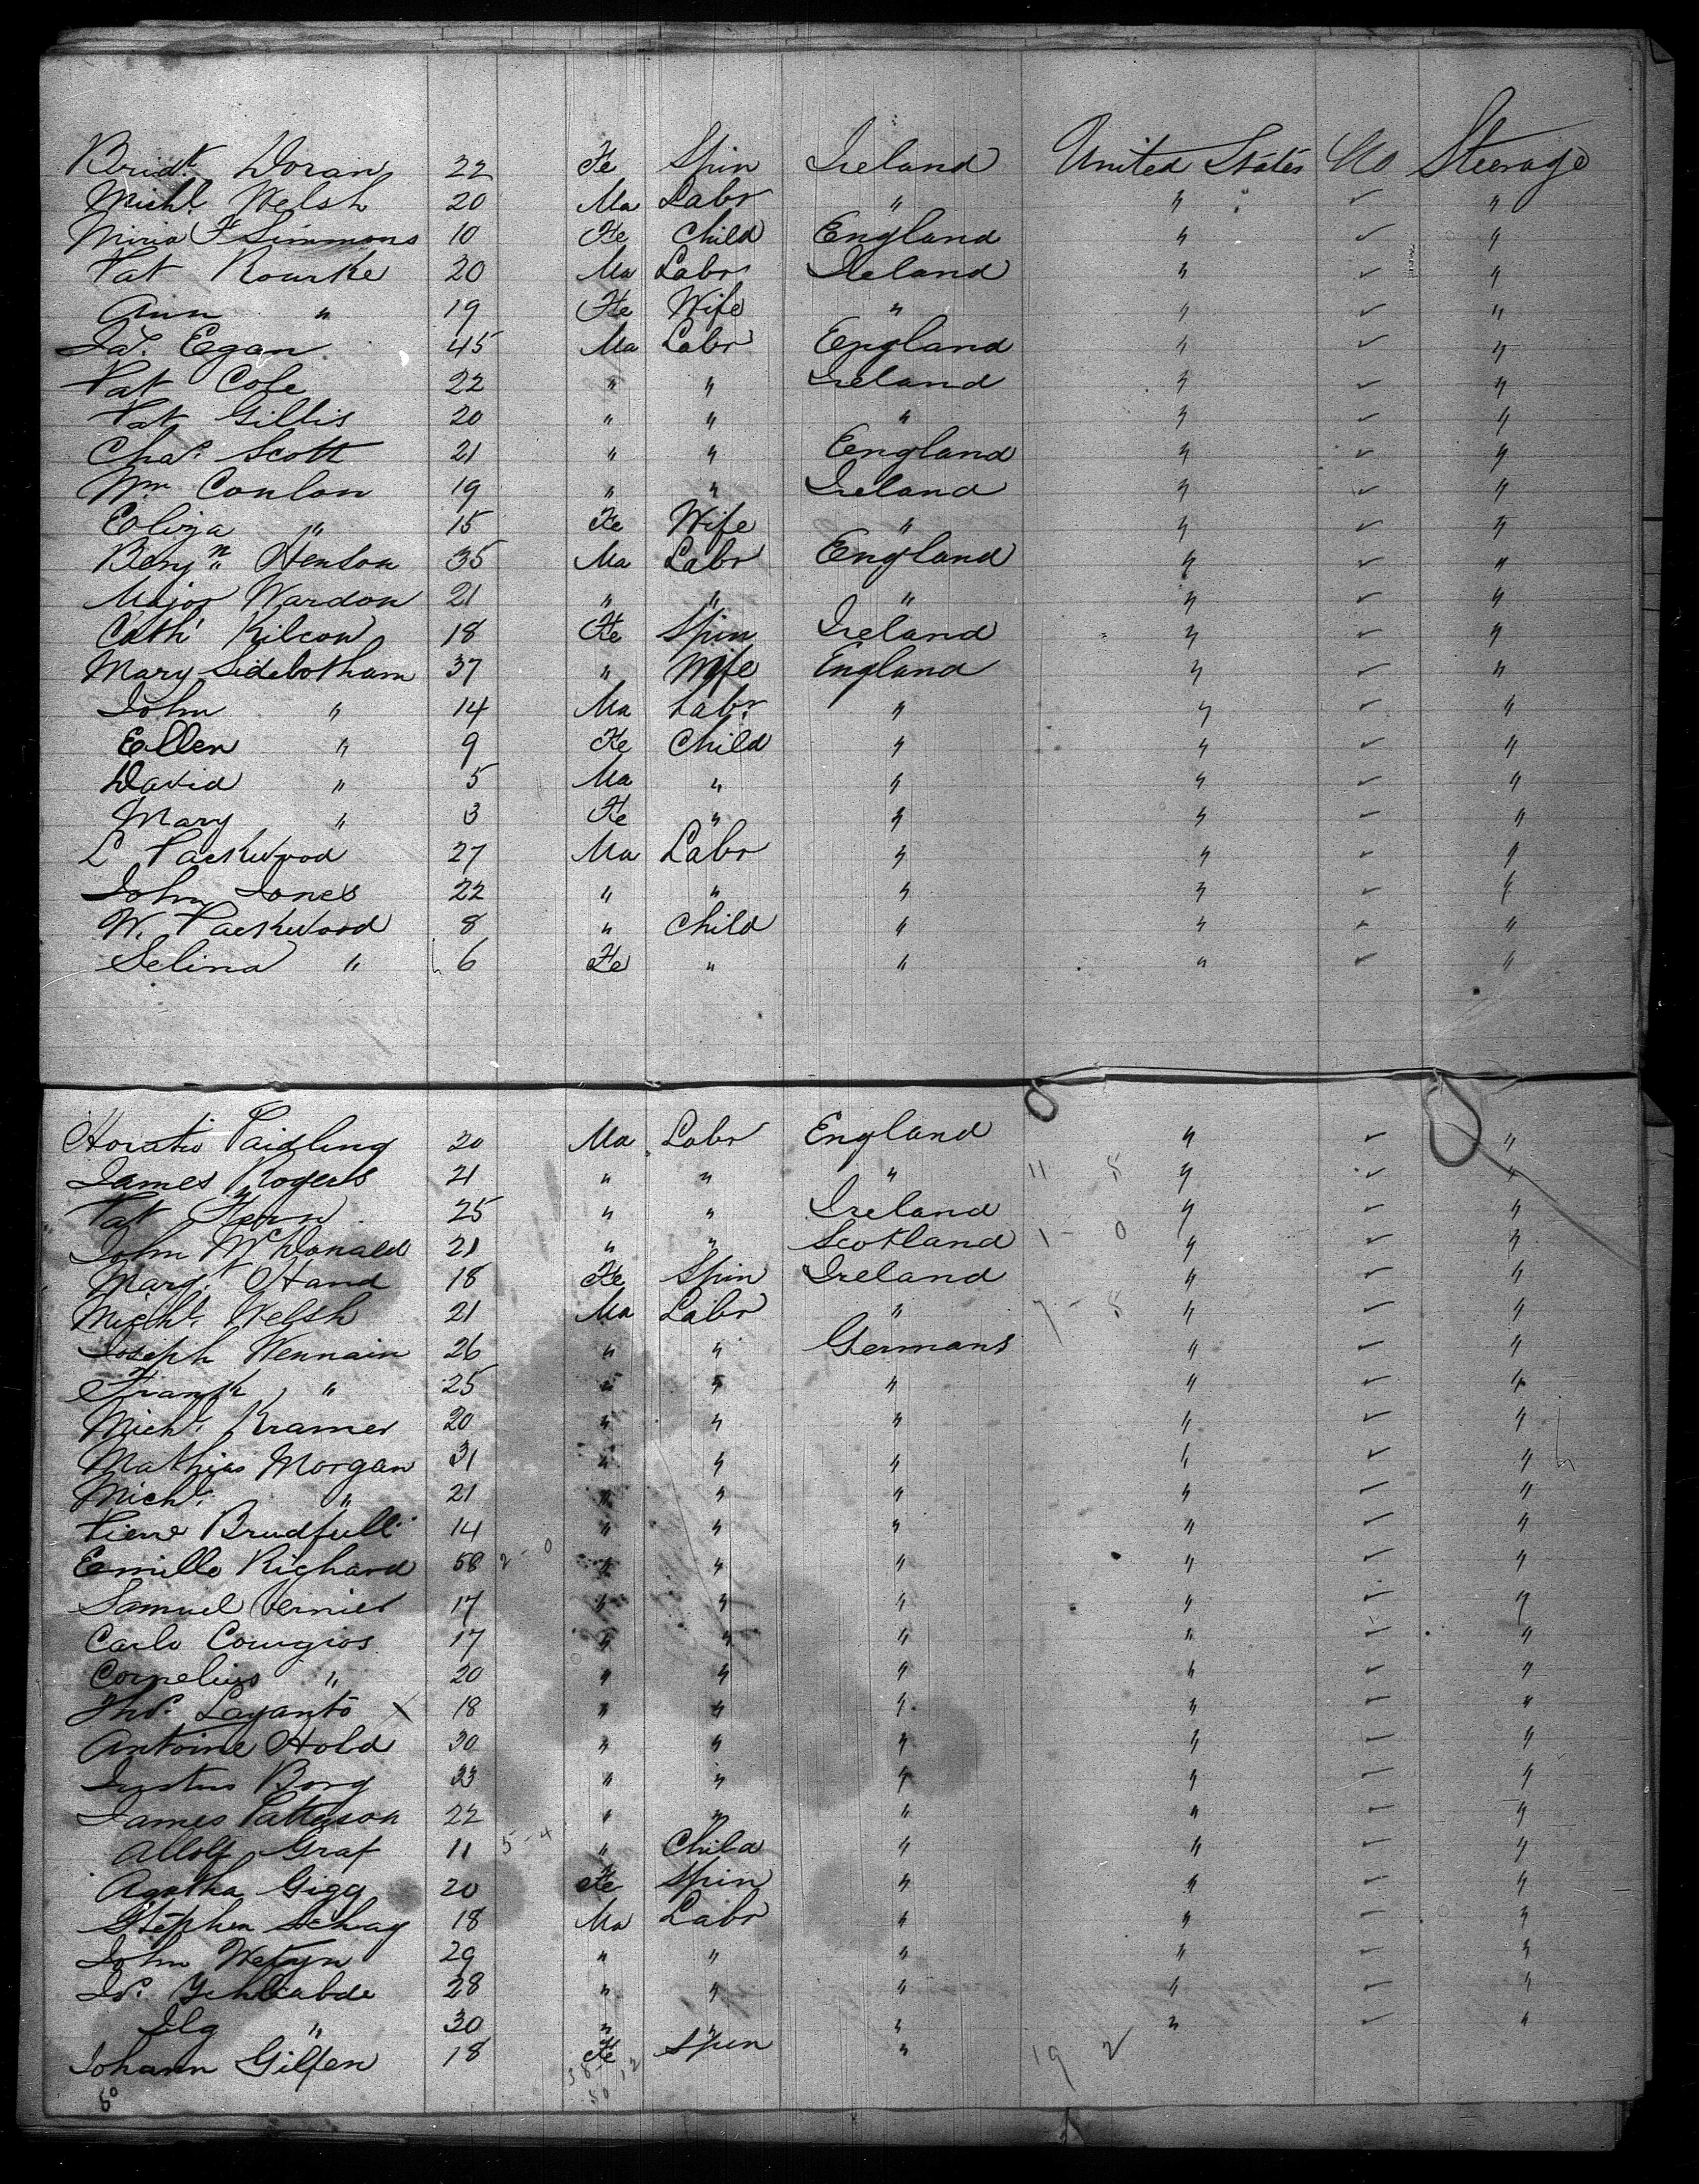 Bridt Doran 22 Fe Spin Ireland United States No Steerage
Michl. Welsh 20 Ma Labr " " ✓ "
Miria F Simmons 10 Fe Child England " ✓ "
Pat Rourke 20 Ma Labr Ireland " ✓ "
Ann " 19 Fe Wife " " ✓ "
Jas. Egan 45 Ma Labr England " ✓ "
Pat Cole 22 " " Ireland " ✓ "
Pat Gillis 20 " " " " ✓ "
Chas. Scott 21 " " England " ✓ "
Wm Conlon 19 " " Ireland " ✓ "
Eliza " 15 Fe Wife " " ✓ "
Benjn Henson 35 Ma Labr England " ✓ "
Major Wardon 21 " " " " ✓ "
Cath Kilcon 18 Fe Spin Ireland " ✓ "
Mary Sidebotham 37 " Wife England " ✓ "
John " 14 Ma Labr " " ✓ "
Ellen " 9 Fe Child " " ✓ "
David " 5 Ma " " " ✓ "
Mary " 3 Fe " " " ✓ "
L Packwood 27 Ma Labr " " ✓ "
John Jones 22 " " " " ✓ "
W. Packwood 8 " Child " " ✓ "
Selina " 6 Fe " " " ✓ "
Horatio Paidling 20 Ma Labr England " ✓ "
James Rogers 21 " " " 11 5 " ✓ "
Pat Fern 25 " " Ireland " ✓ "
John McDonald 21 " " Scotland 1 - 0 " ✓ "
Margt Hand 18 Fe Spin Ireland " ✓ "
Michl. Welsh 21 Ma Labr " 7 - 5 " ✓ "
Joseph Wennain 26 " " Germans " ✓ "
Frank " 25 " " " " ✓ "
Michl. Kramer 20 " " " " ✓ "
Mathias Morgan 31 " " " " ✓ "
Michl. " 21 " " " " ✓ "
Pierre Brudfull 14 " " " " ✓ "
Emille Richard 58 2 - 0 " " " " ✓ "
Samuel Vernier 17 " " " " ✓ "
Carlo Courgios 17 " " " " ✓ "
Cornelius " 20 " " " " ✓ "
Thos. Layanto X 18 " " " " ✓ "
Antoine Hold 30 " " " " ✓ "
Justus Borg 33 " " " " ✓ "
James Patterson 22 " " " " ✓ "
Allolf Graf 11 5 - 4 " Child " " ✓ "
Agatha Gigg 20 Fe Spin " " ✓ "
Stephen Schag 18 Ma Labr " " ✓ "
John Wetzyn 29 " " " " ✓ "
Jos. 28 " " " " ✓ "
Ilg " 30 " " " " ✓ "
Johann Gilfen 18 Fe Spin " 19 2
50 38 - 12
50